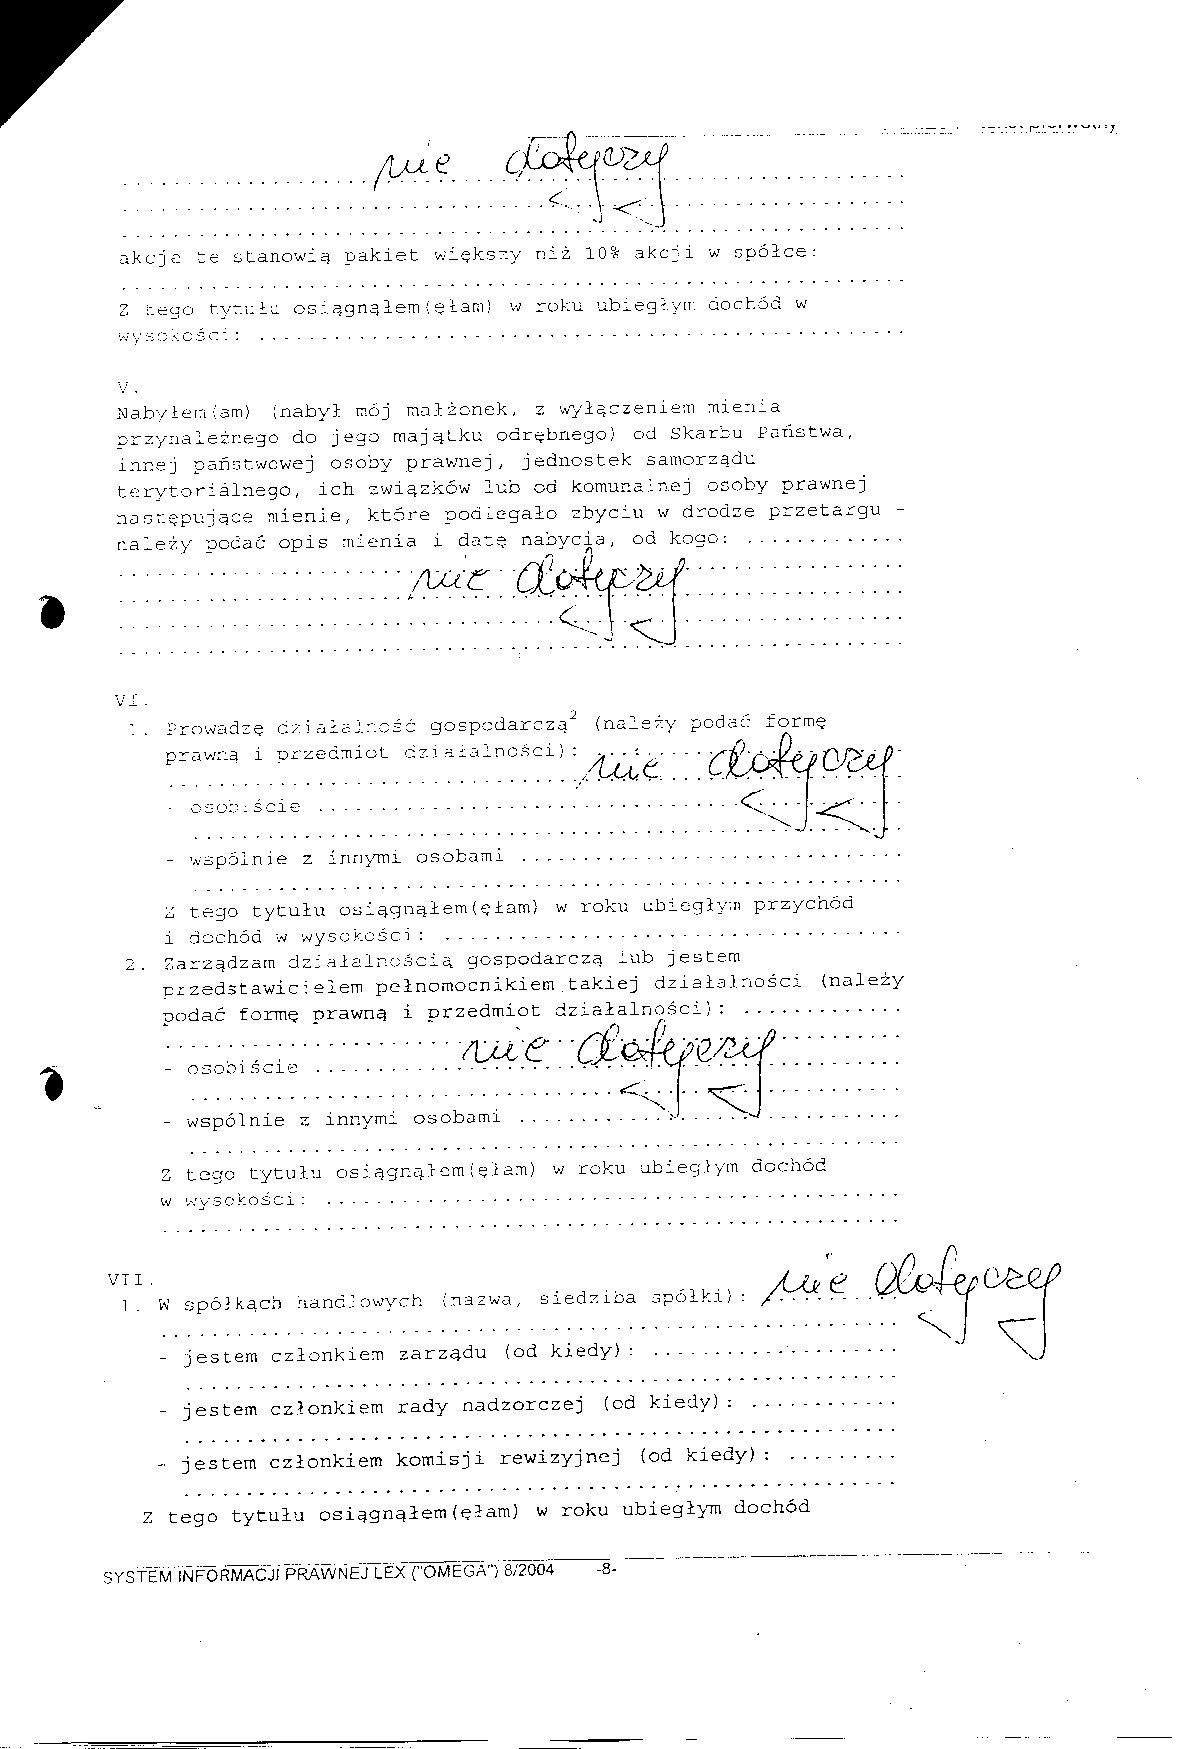 nie dotyczy
akcje te stanowią pakiet większy niż 10% akcji w spółce:
Z tego tytułu osiągnąłem(ęłam) w roku ubiegłym dochód w
wysokości: ....................................................
V.
Nabyłem(am) (nabył mój małżonek, z wyłączeniem mienia
przynależnego do jego majątku odrębnego) od Skarbu Państwa,
innej państwowej osoby prawnej, jednostek samorządu
terytorialnego, ich związków lub od komunalnej osoby prawnej
następujące mienie, które podlegało zbyciu w drodze przetargu -
należy podać opis mienia i datę nabycia, od kogo: .............
nie dotyczy
VI.
1. Prowadzę działalność gospodarczą² (należy podać formę
prawną i przedmiot działalności): nie dotyczy
- osobiście ...............................................
- wspólnie z innymi osobami ...............................
Z tego tytułu osiągnąłem(ęłam) w roku ubiegłym przychód
i dochód w wysokości: .....................................
2. Zarządzam działalnością gospodarczą lub jestem
przedstawicielem pełnomocnikiem takiej działalności (należy
podać formę prawną i przedmiot działalności): .............
nie dotyczy
- osobiście ...............................................
- wspólnie z innymi osobami ...............................
Z tego tytułu osiągnąłem(ęłam) w roku ubiegłym dochód
w wysokości: ..............................................
VII.
1. W spółkach handlowych (nazwa, siedziba spółki): nie dotyczy
- jestem członkiem zarządu (od kiedy): ....................
- jestem członkiem rady nadzorczej (od kiedy): ............
- jestem członkiem komisji rewizyjnej (od kiedy): .........
Z tego tytułu osiągnąłem(ęłam) w roku ubiegłym dochód
SYSTEM INFORMACJI PRAWNEJ LEX ("OMEGA") 8/2004 -8-